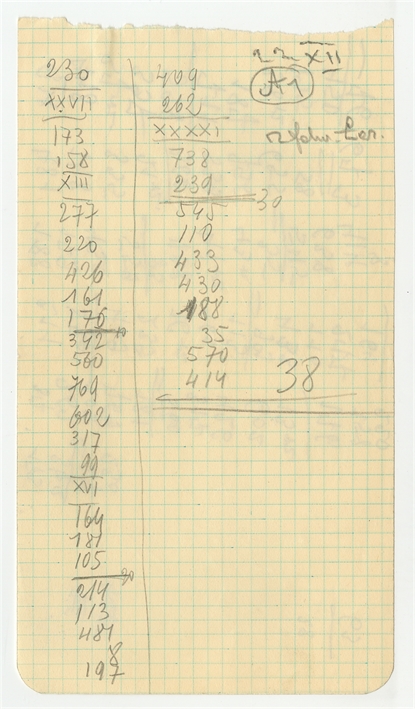 22 XII
A1
230
XXVII
173
158
XIII
277
220
426
161
176
10
342
560
769
602
317
99
XVI
164
181
105
20
214
113
481
8
197
409
262
XXXXI
738
239
30
545
110
433
430
188
35
570
414
38